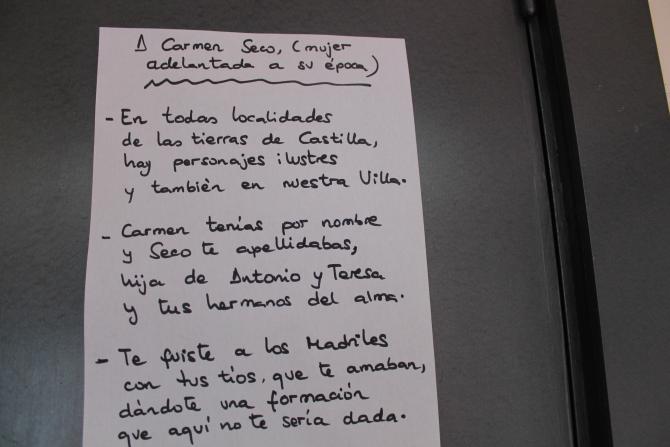 A Carmen Seco, (mujer
adelantada a su época)
- En todas localidades
de las tierras de Castilla,
hay personajes ilustres
y también en nuestra Villa.
- Carmen tenías por nombre
y Seco te apellidabas,
hija de Antonio y Teresa
y tus hermanos del alma.
- Te fuiste a los Madriles
con tus tios, que te amaban,
dándote una formación
que aquí no te sería dada.